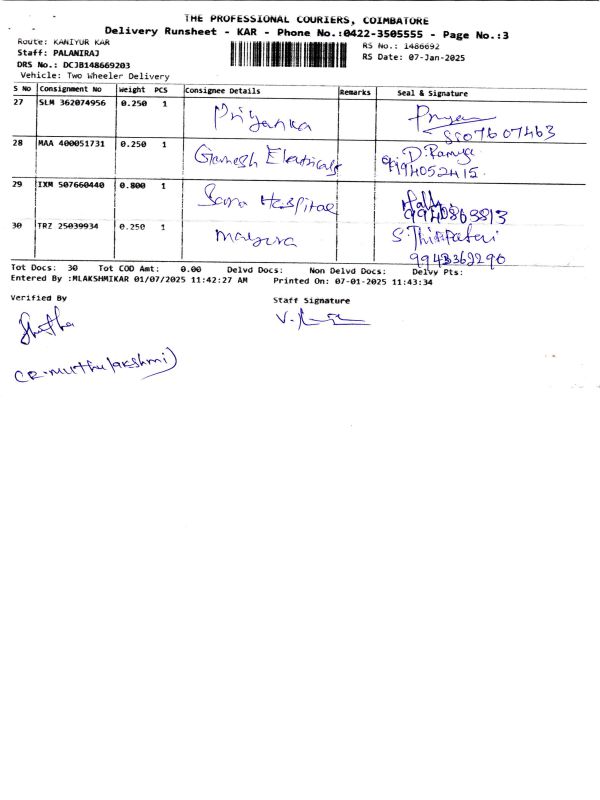 THE PROFESSIONAL COURIERS, COIMBATORE
Delivery Runsheet - KAR - Phone No.:0422-3505555 - Page No.:3
Route: KANIYUR KAR
RS No.: 1486692
Staff: PALANIRAJ
RS Date: 07-Jan-2025
DRS No.: DCJB148669203
Vehicle: Two Wheeler Delivery
S No Consignment No Weight PCS Consignee Details Remarks Seal & Signature
27 SLM 362074956 0.250 1 Priyanka Priya
28 MAA 400051731 0.250 1 Ganesh Electricals D. Ramya
29 IXM 507660440 0.800 1 Hospital
9940863813
30 TRZ 25039934 0.250 1 mayura
9943362296
Tot Docs: 30 Tot COD Amt: 0.00 Delvd Docs: Non Delvd Docs: Delvy Pts:
Entered By :MLAKSHMIKAR 01/07/2025 11:42:27 AM Printed On: 07-01-2025 11:43:34
Verified By Staff Signature
(R.Muthulakshmi)